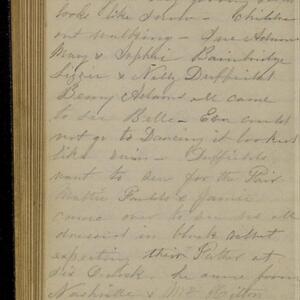 looks like snow - Children
out walking - Sue Adams
Mary & Sophie Bainbridge
Lizzie & Nelly Duffield
Benny Adams all came
to see Belle - Eva could
not go to Dancing it looked
like rain - Duffields
went to see for the Fair
Mattie &
came over to see us all
dressed in black velvet
expecting their Father at
six O'clock. he came from
Nashville &